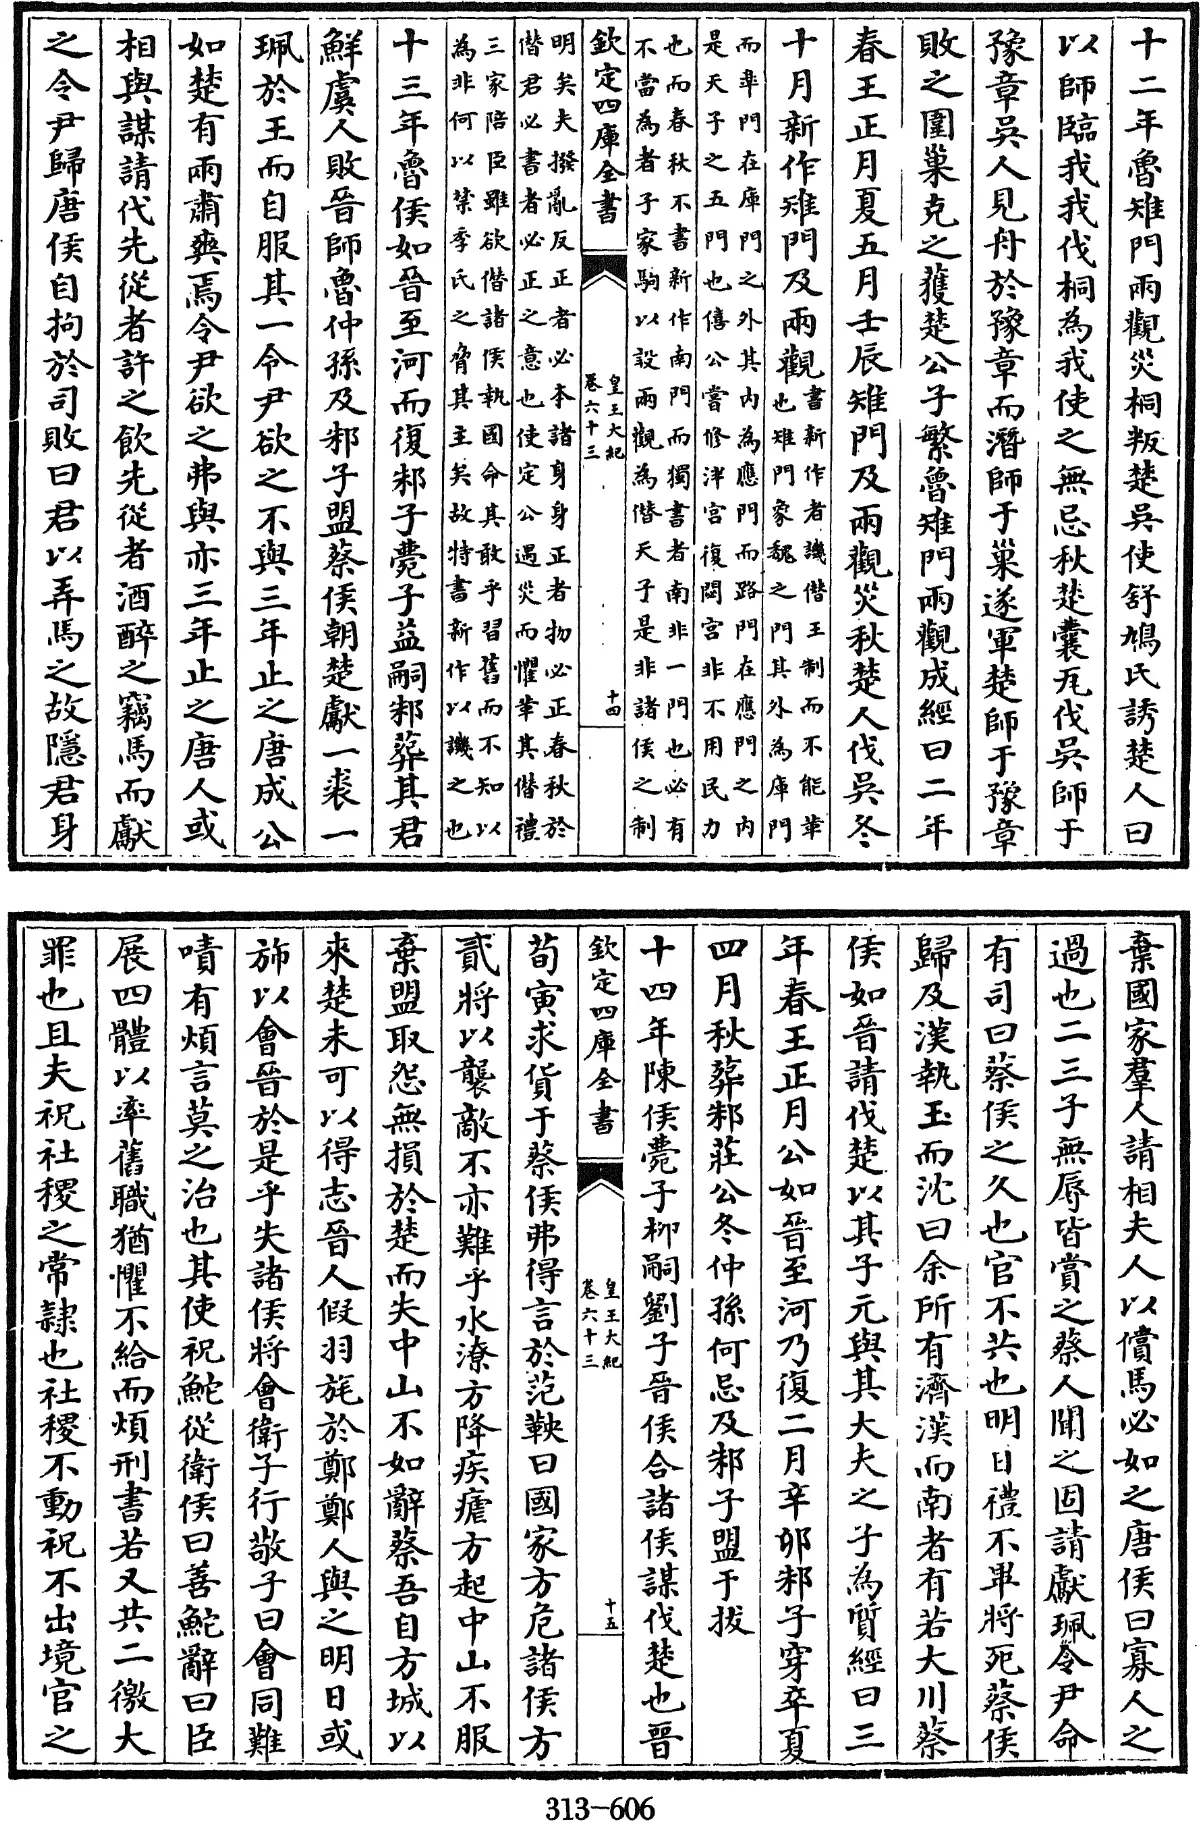 十二年魯雉門兩觀災桐叛楚吳使舒鳩氏誘楚人曰
以師臨我我伐桐為我使之無忌秋楚囊瓦伐吳師于
豫章吳人見舟於豫章而潛師于巢遂軍楚師于豫章
敗之圍巢克之獲楚公子繁魯雉門兩觀成經曰二年
春王正月夏五月壬辰雉門及兩觀災秋楚人伐吳冬
十月新作雉門及兩觀書新作者譏僭王制而不能革
也雉門象魏之門其外為庫門
而臯門在庫門之外其內為應門而路門在應門之內
是天子之五門也僖公嘗修泮宮復閟宮非不用民力
也而春秋不書新作南門而獨書者南非一門也必有
不當為者子家駒以設兩觀為僭天子是非諸侯之制
欽定四庫全書
皇王大紀
卷六十三
十四
明矣夫撥亂反正者必本諸身身正者物必正春秋於
僭君必書者必正之意也使定公遇災而懼革其僭禮
三家陪臣雖欲僭諸侯執國命其敢乎習舊而不知以
為非何以禁季氏之脅其主矣故特書新作以譏之也
十三年魯侯如晉至河而復邾子薨子益嗣邾葬其君
鮮虞人敗晉師魯仲孫及邾子盟蔡侯朝楚獻一裘一
珮於王而自服其一令尹欲之不與三年止之唐成公
如楚有兩肅爽焉令尹欲之弗與亦三年止之唐人或
相與謀請代先從者許之飲先從者酒醉之竊馬而獻
之令尹歸唐侯自拘於司敗曰君以弄馬之故隱君身
棄國家羣人請相夫人以償馬必如之唐侯曰寡人之
過也二三子無辱皆賞之蔡人聞之固請獻珮令尹命
有司曰蔡侯之久也官不共也明日禮不畢將死蔡侯
歸及漢執玉而沈曰余所有濟漢而南者有若大川蔡
侯如晉請伐楚以其子元與其大夫之子為質經曰三
年春王正月公如晉至河乃復二月辛卯邾子穿卒夏
四月秋葬邾莊公冬仲孫何忌及邾子盟于拔
十四年陳侯薨子柳嗣劉子晉侯合諸侯謀伐楚也晉
欽定四庫全書
皇王大紀
卷六十三
十五
荀寅求貨于蔡侯弗得言於范鞅曰國家方危諸侯方
貳將以襲敵不亦難乎水潦方降疾瘧方起中山不服
棄盟取怨無損於楚而失中山不如辭蔡吾自方城以
來楚未可以得志晉人假羽旄於鄭鄭人與之明日或
旆以會晉於是乎失諸侯將會衛子行敬子曰會同難
嘖有煩言莫之治也其使祝鮀從衛侯曰善鮀辭曰臣
展四體以率舊職猶懼不給而煩刑書若又共二徼大
罪也且夫祝社稷之常隸也社稷不動祝不出境官之
313-606